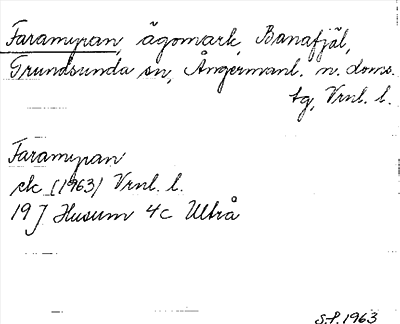 Faramyran, ägomark, Banafjäl,
Grundsunda sn, Ångermanl. n. doms.
tg, Vrnl. l.
Faramyran
ek (1963) Vrnl. l.
19 J Husum 4c Ultrå
S.P. 1963